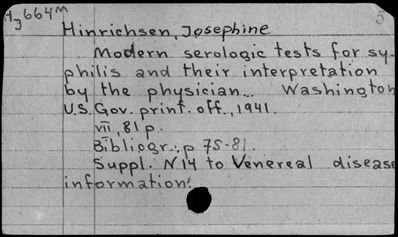 A₃664M
5
Hinrichsen, Josephine
Modern serologic tests for sy-
philis and their interpretation
by the physician... Washington
U.S. Gov. print. off., 1941.
VII, 81 p.
Bibliogr.: p. 75-81.
Suppl. N14 to Venereal disease
information.